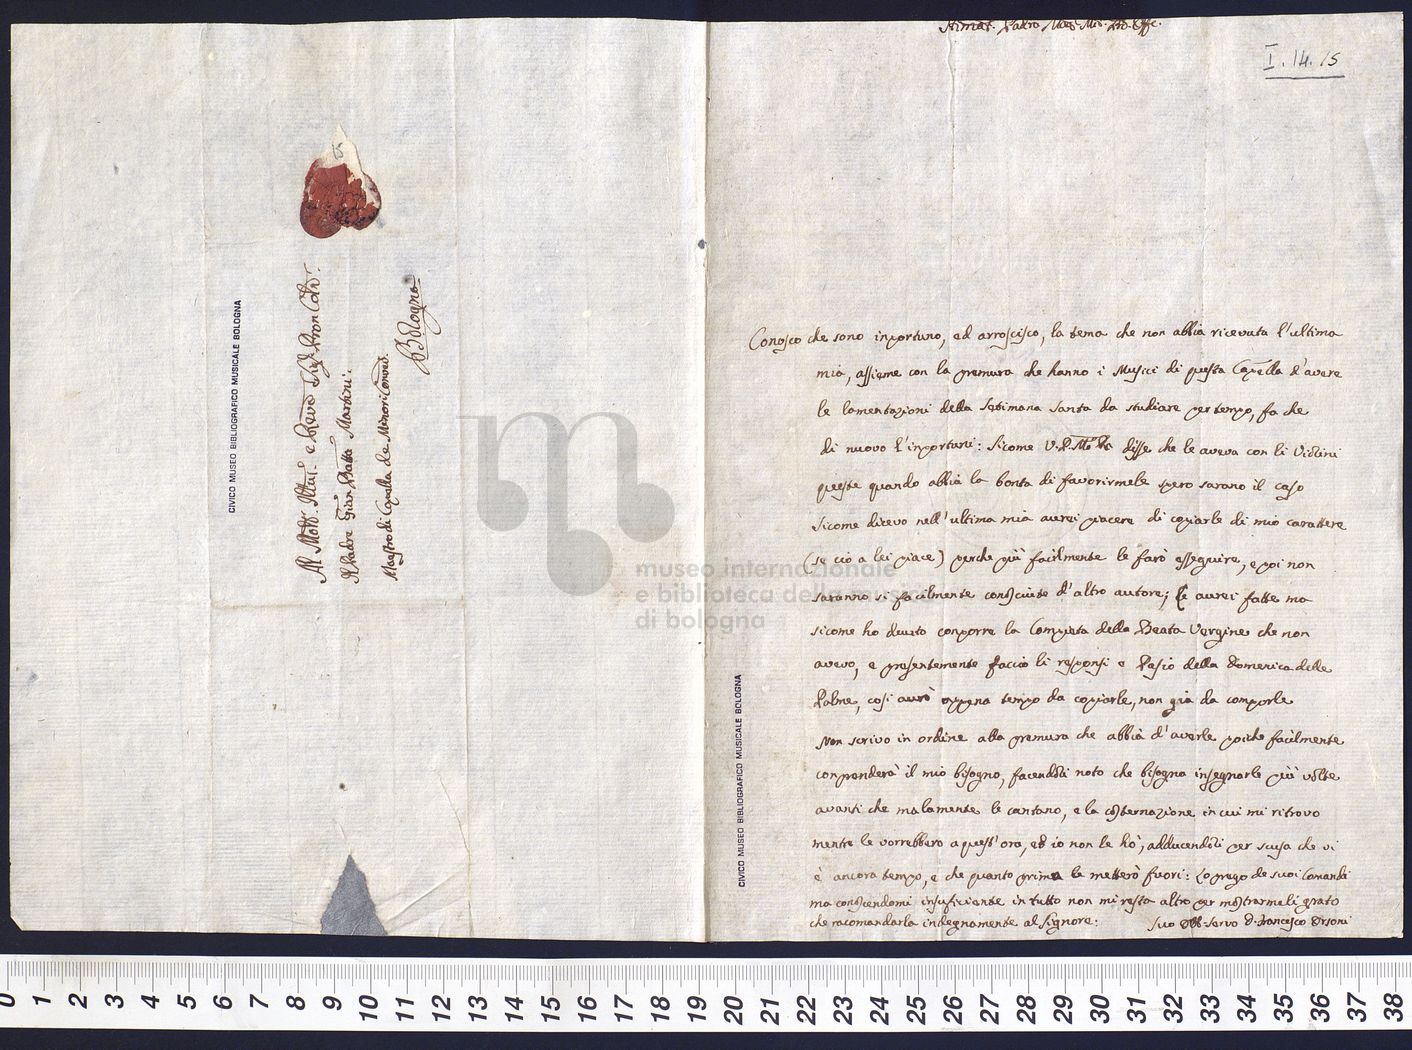 Stimat. Padre Maes. Mio. Pd. Effe.
I. 14. 15
Conosco che sono inportuno, ed arroscisco, la tema che non abbia ricevuta l'ultima
mia, assieme con la premura che hanno i Musici di questa Capella d'avere
le lamentazioni della Setimana Santa da studiare per tempo, fa che
di nuovo l'inportuni: Sicome V.P. disse che le aveva con li Violini
queste quando abbia la bontà di favorirmele spero sarano il caso
Sicome dicevo nell'ultima mia averei piacere di copiarle di mio carattere
(se ciò a lei piace) perche più facilmente le farò esseguire, e poi non
saranno si facilmente consciute d'altro autore; Le averei fatte ma
sicome ho dovuto conporre la Compieta della Beata Vergine che non
avevo, e presentemente faccio li responsi e Pasio della Domenica delle
Palme, così avrò appena tempo da copiarle, non già da comporle
Non scrivo in ordine alla premura che abbia d'averle poiche facilmente
conprenderà il mio bisogno, facendoli noto che bisogna insegnarle più volte
avanti che malamente le cantano, e la costernazione in cui mi ritrovo
mentre le vorrebbero a quest'ora, ed io non le hò, adducendoli per scusa che vi
è ancora tempo, e che quanto prima le metterò fuori: Lo prego de suoi Comandi
ma conoscendomi insuficiente in tutto non mi resta altro per mostrarmeli grato
che racomandarla indegnamente al Signore: Suo Obb. Servo D. Francesco Orsoni
Al Molt. Illus. e Revdo Sig. Pron Colo.
Il Padre Gian Batta Martini:
Maestro di Capella de Minori Conved.
Bologna
15
CIVICO MUSEO BIBLIOGRAFICO MUSICALE BOLOGNA
CIVICO MUSEO BIBLIOGRAFICO MUSICALE BOLOGNA
museo internazionale
e biblioteca della musica
di bologna
0 1 2 3 4 5 6 7 8 9 10 11 12 13 14 15 16 17 18 19 20 21 22 23 24 25 26 27 28 29 30 31 32 33 34 35 36 37 38